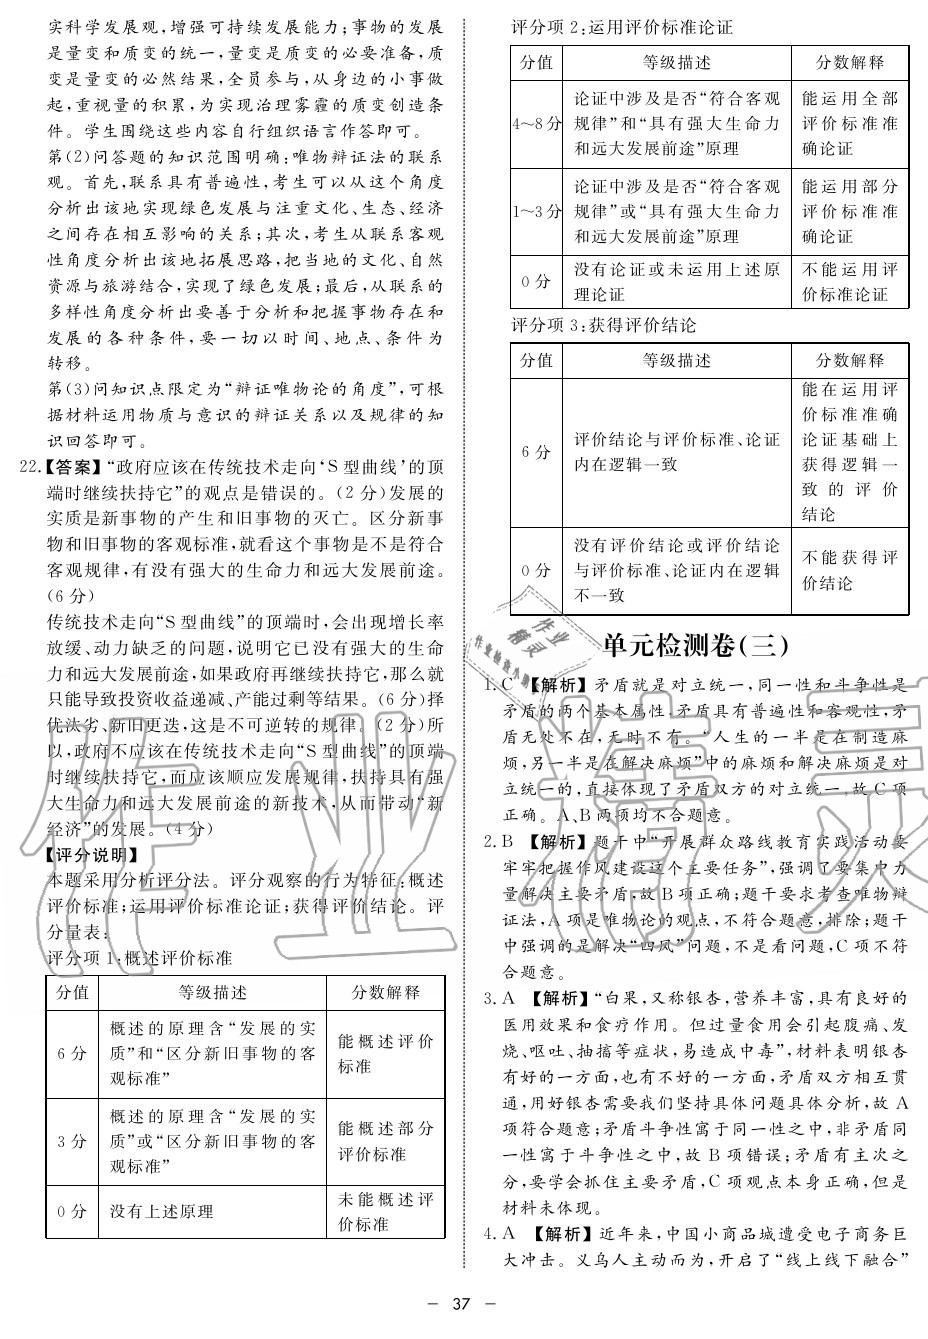 实科学发展观,增强可持续发展能力;事物的发展
是量变和质变的统一,量变是质变的必要准备,质
变是量变的必然结果,全员参与,从身边的小事做
起,重视量的积累,为实现治理雾霾的质变创造条
件。学生围绕这些内容自行组织语言作答即可。
第(2)问答题的知识范围明确:唯物辩证法的联系
观。首先,联系具有普遍性,考生可以从这个角度
分析出该地实现绿色发展与注重文化、生态、经济
之间存在相互影响的关系;其次,考生从联系客观
性角度分析出该地拓展思路,把当地的文化、自然
资源与旅游结合,实现了绿色发展;最后,从联系的
多样性角度分析出要善于分析和把握事物存在和
发展的各种条件,要一切以时间、地点、条件为
转移。
第(3)问知识点限定为“辩证唯物论的角度”,可根
据材料运用物质与意识的辩证关系以及规律的知
识回答即可。
22.【答案】“政府应该在传统技术走向‘S型曲线’的顶
端时继续扶持它”的观点是错误的。(2分)发展的
实质是新事物的产生和旧事物的灭亡。区分新事
物和旧事物的客观标准,就看这个事物是不是符合
客观规律,有没有强大的生命力和远大发展前途。
(6分)
传统技术走向“S型曲线”的顶端时,会出现增长率
放缓、动力缺乏的问题,说明它已没有强大的生命
力和远大发展前途,如果政府再继续扶持它,那么就
只能导致投资收益递减、产能过剩等结果。(6分)择
优汰劣、新旧更迭,这是不可逆转的规律。(2分)所
以,政府不应该在传统技术走向“S型曲线”的顶端
时继续扶持它,而应该顺应发展规律,扶持具有强
大生命力和远大发展前途的新技术,从而带动“新
经济”的发展。(4分)
【评分说明】
本题采用分析评分法。评分观察的行为特征:概述
评价标准;运用评价标准论证;获得评价结论。评
分量表:
评分项1:概述评价标准
分值 等级描述 分数解释
6分 概述的原理含“发展的实
质”和“区分新旧事物的客
观标准” 能概述评价
标准
3分 概述的原理含“发展的实
质”或“区分新旧事物的客
观标准” 能概述部分
评价标准
0分 没有上述原理 未能概述评
价标准
评分项2:运用评价标准论证
分值 等级描述 分数解释
4~8分 论证中涉及是否“符合客观
规律”和“具有强大生命力
和远大发展前途”原理 能运用全部
评价标准准
确论证
1~3分 论证中涉及是否“符合客观
规律”或“具有强大生命力
和远大发展前途”原理 能运用部分
评价标准准
确论证
0分 没有论证或未运用上述原
理论证 不能运用评
价标准论证
评分项3:获得评价结论
分值 等级描述 分数解释
6分 评价结论与评价标准、论证
内在逻辑一致 能在运用评
价标准准确
论证基础上
获得逻辑一
致的评价
结论
0分 没有评价结论或评价结论
与评价标准、论证内在逻辑
不一致 不能获得评
价结论
单元检测卷(三)
1.C 【解析】矛盾就是对立统一,同一性和斗争性是
矛盾的两个基本属性,矛盾具有普遍性和客观性,矛
盾无处不在,无时不有。“人生的一半是在制造麻
烦,另一半是在解决麻烦”中的麻烦和解决麻烦是对
立统一的,直接体现了矛盾双方的对立统一,故C项
正确。A、B两项均不合题意。
2.B 【解析】题干中“开展群众路线教育实践活动要
牢牢把握作风建设这个主要任务”,强调了要集中力
量解决主要矛盾,故B项正确;题干要求考查唯物辩
证法,A项是唯物论的观点,不符合题意,排除;题干
中强调的是解决“四风”问题,不是看问题,C项不符
合题意。
3.A 【解析】“白果,又称银杏,营养丰富,具有良好的
医用效果和食疗作用。但过量食用会引起腹痛、发
烧、呕吐、抽搐等症状,易造成中毒”,材料表明银杏
有好的一方面,也有不好的一方面,矛盾双方相互贯
通,用好银杏需要我们坚持具体问题具体分析,故A
项符合题意;矛盾斗争性寓于同一性之中,非矛盾同
一性寓于斗争性之中,故B项错误;矛盾有主次之
分,要学会抓住主要矛盾,C项观点本身正确,但是
材料未体现。
4.A 【解析】近年来,中国小商品城遭受电子商务巨
大冲击。义乌人主动而为,开启了“线上线下融合”
作业精灵
作业
精灵
作业检查小助手
— 37 —